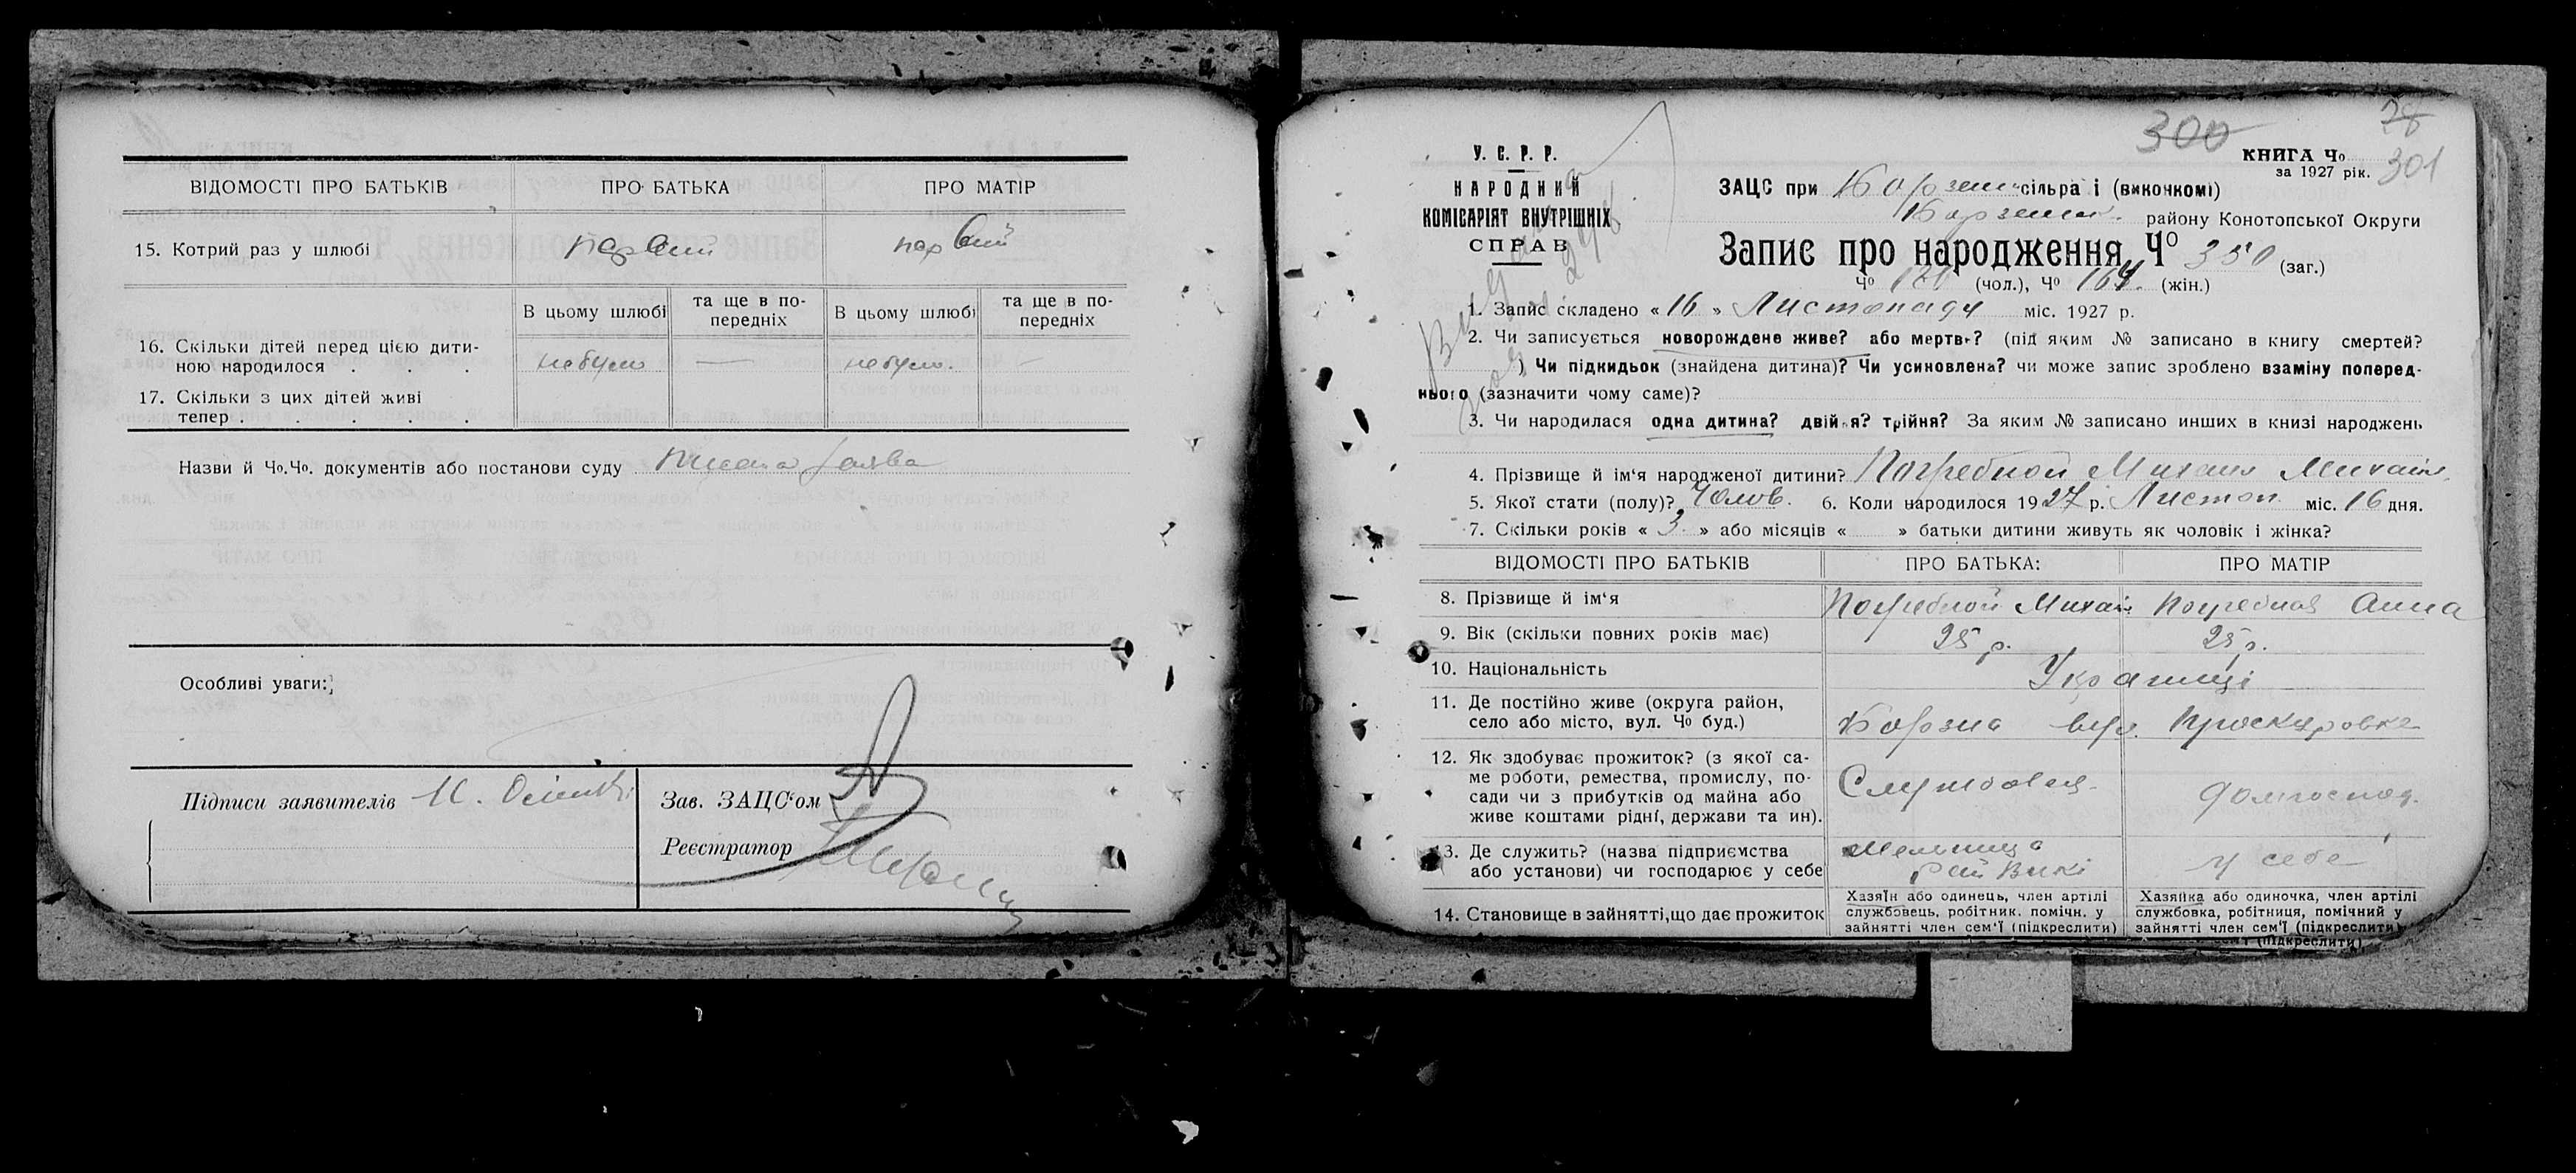 ВІДОМОСТІ ПРО БАТЬКІВ ПРО БАТЬКА ПРО МАТІР
15. Котрий раз у шлюбі первий первий
В цьому шлюбі та ще в по-передніх В цьому шлюбі та ще в по-передніх
16. Скільки дітей перед цією дити-
ною народилося . . . небуло — небуло. —
17. Скільки з цих дітей живі
тепер . . . . .
Назви й Чо.Чо. документів або постанови суду
Особливі уваги:
Підписи заявителів
Зав. ЗАЦС'ом
Реєстратор
300
28
301
У. С. Р. Р.
НАРОДНИЙ
КОМІСАРІЯТ ВНУТРІШНІХ
СПРАВ
КНИГА Чо
за 1927 рік.
ЗАЦС при Борзен сільра і (викочкомі)
Борзенск. району Конотопської Округи
Запис про народження Чо 350 (заг.)
Чо (чол.), Чо 164. (жін.)
1. Запис складено « 16 » Листопаду міс. 1927 р.
2. Чи записується новорождене живе? або мертве? (під яким № записано в книгу смертей?
) Чи підкидьок (знайдена дитина)? Чи усиновлена? чи може запис зроблено взаміну поперед-
нього (зазначити чому саме)?
3. Чи народилася одна дитина? двійня? трійня? За яким № записано инших в книзі народжень
4. Прізвище й ім'я народженої дитини? Погребной Михаил Михайл.
5. Якої стати (полу)? Чолов. 6. Коли народилося 1927 р. Листоп. міс. 16 дня.
7. Скільки років « 3 » або місяців « » батьки дитини живуть як чоловік і жінка?
ВІДОМОСТІ ПРО БАТЬКІВ ПРО БАТЬКА: ПРО МАТІР
8. Прізвище й ім'я Погребной Михаил Погребная Анна
9. Вік (скільки повних років має) 25 р. 25 р.
10. Національність Українці
11. Де постійно живе (округа район,
село або місто, вул. Чо буд.) Борзна вул. Проскуровка
12. Як здобуває прожиток? (з якої са-
ме роботи, ремества, промислу, по-
сади чи з прибутків од майна або
живе коштами рідні, держави та ин). Службовец. домгоспод.
13. Де служить? (назва підприємства
або установи) чи господарює у себе у себе
14. Становище в зайнятті, що дає прожиток
Хазяїн або одинець, член артілі
службовець, робітник. помічн. у
зайнятті член сем'ї (підкреслити)
Хазяйка або одиночка, член артілі
службовка, робітниця, помічний у
зайнятті член сем'ї (підкреслити)